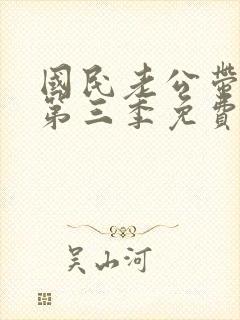 國民老公帶
第三季免費
吴山河